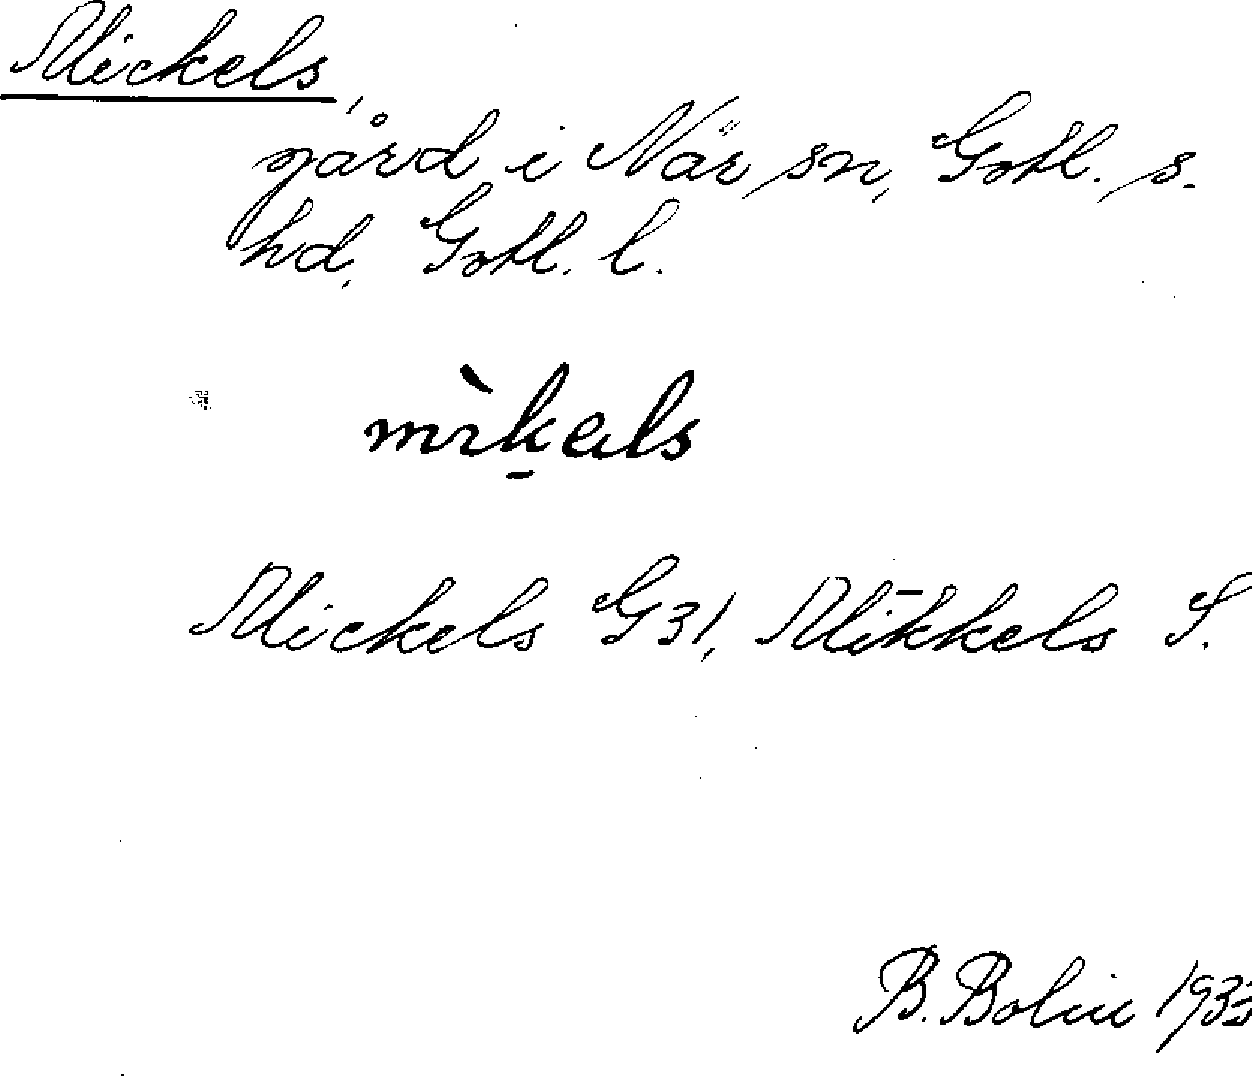 Mickels,
gård i När sn, Gotl. s.
hd, Gotl. l.
mìk̠els
Mickels G31, Mīkkels S.
B. Bolin 1933